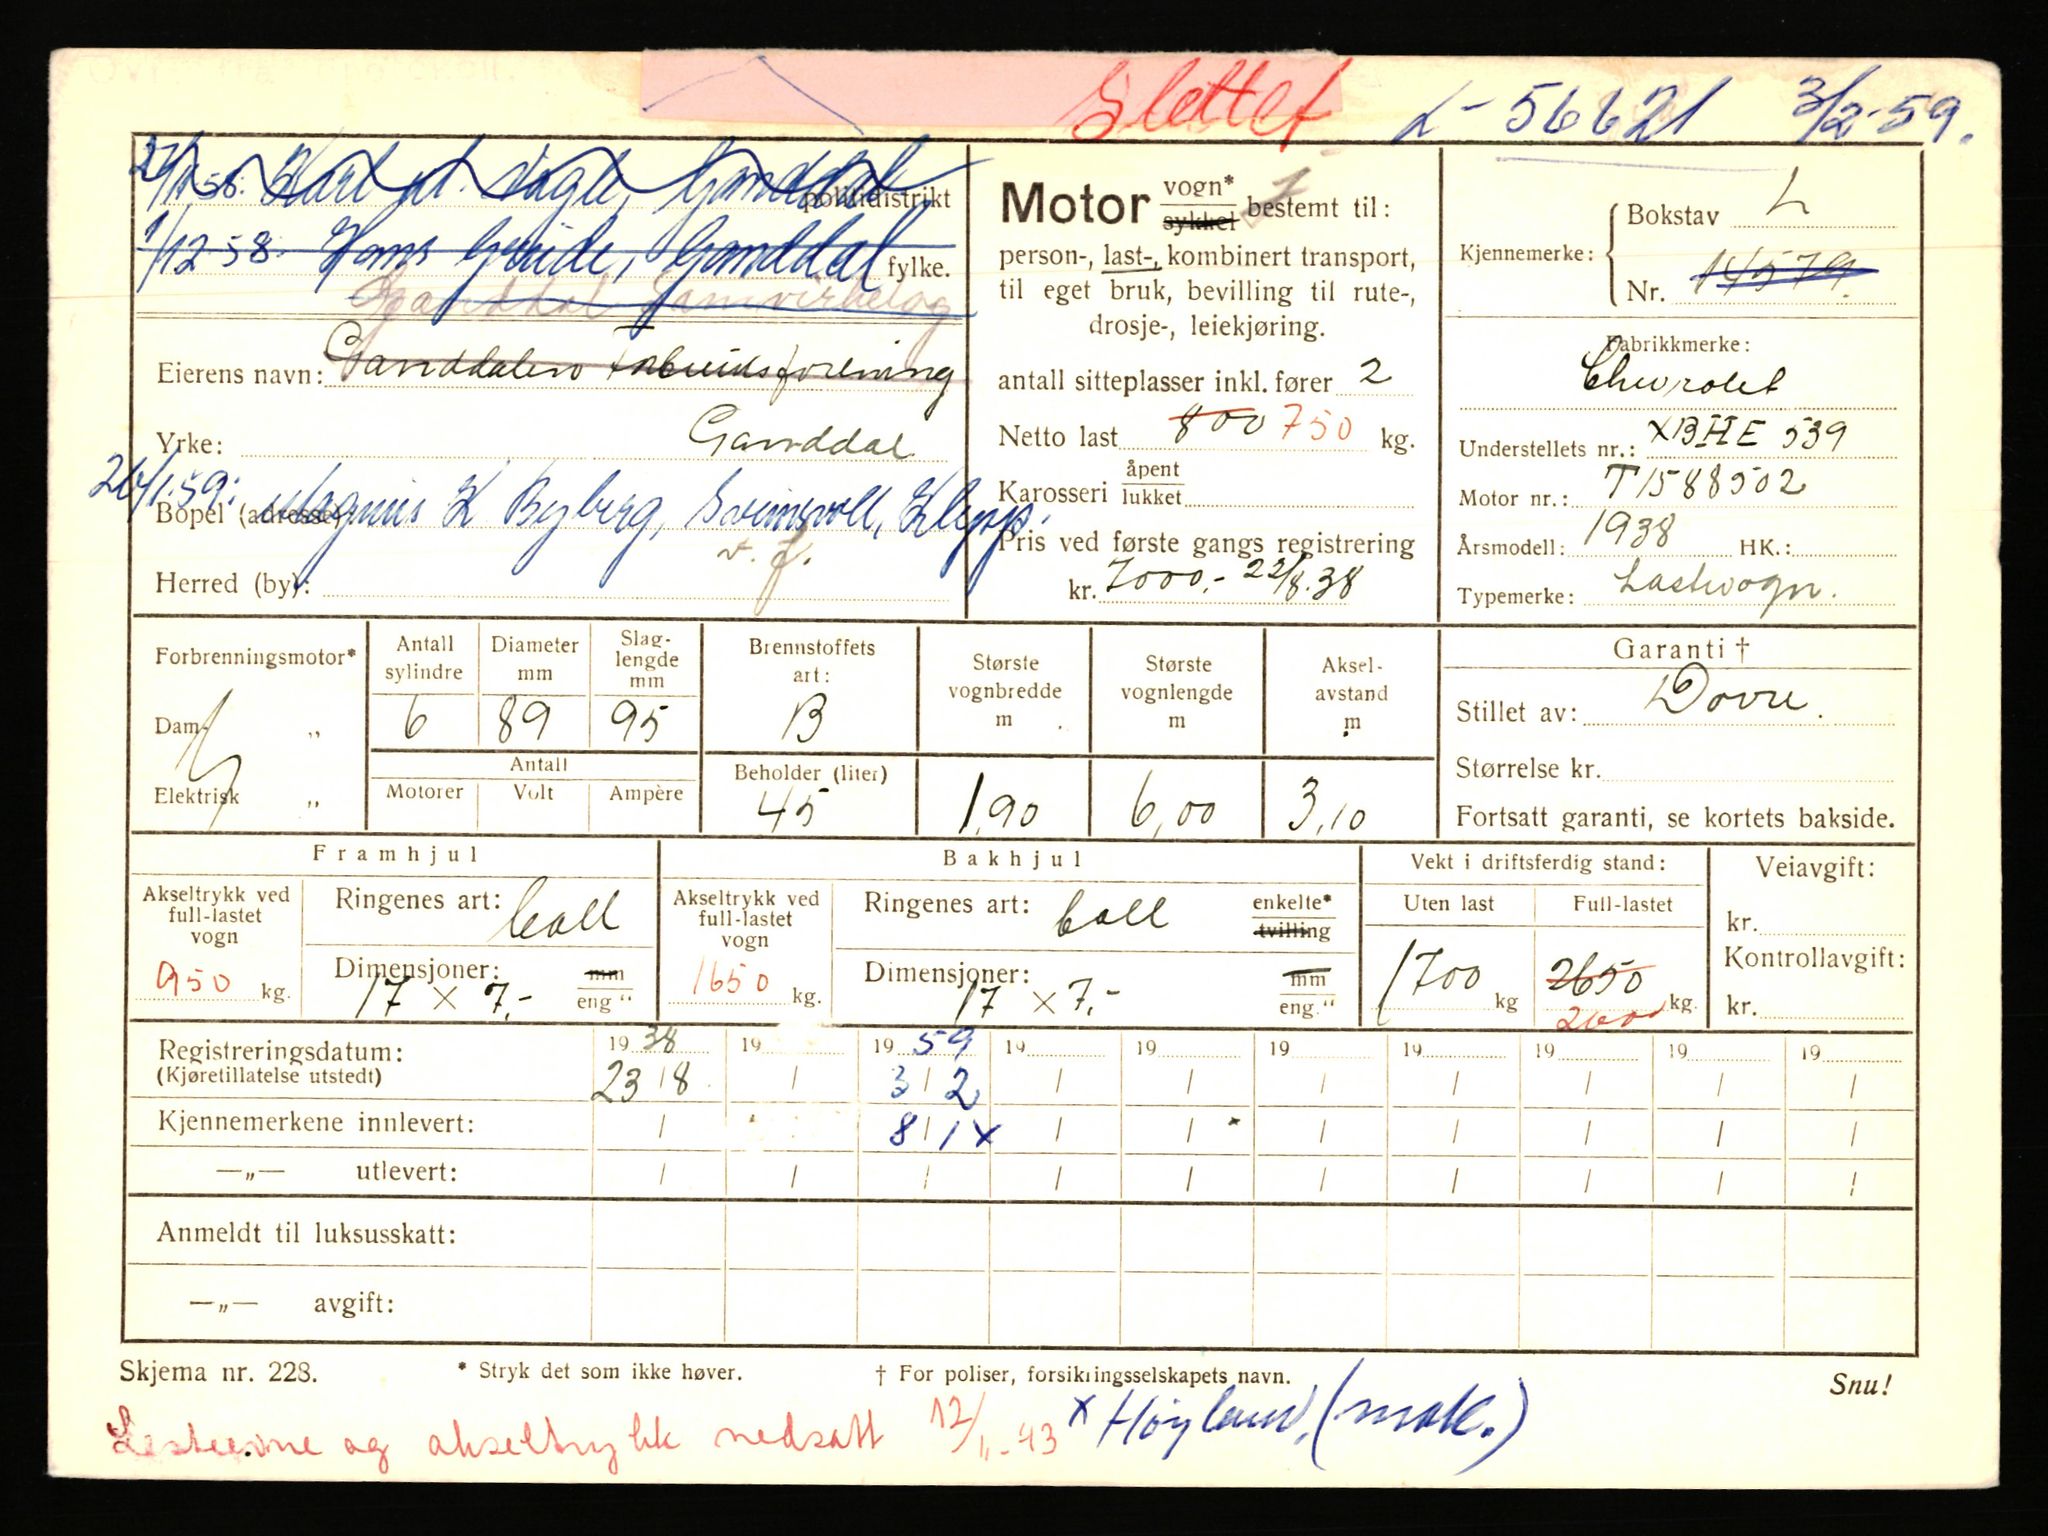 Slettet L-56621 3/2-59.
27/1 58. Karl politidistrikt
1/12 58. Hans Grude, Ganddal fylke.
Ganddal Samvirkelag
Eierens navn: Ganddalens forening
Yrke: Ganddal
26/1.59: Magnus K Byberg, Klepp.
Bopel (adresse):
v. f.
Herred (by):
Motor vogn* sykkel bestemt til:
person-, last-, kombinert transport,
til eget bruk, bevilling til rute-,
drosje-, leiekjøring.
antall sitteplasser inkl. fører 2
Netto last 800 750 kg.
Karosseri åpent lukket
Pris ved første gangs registrering
kr. 7000,- 22/8.38
Kjennemerke: Bokstav L
Nr. 14579.
Fabrikkmerke:
Chevrolet
Understellets nr.: XBHE 539
Motor nr.: T1588502
Årsmodell: 1938 HK.:
Typemerke: Lastevogn.
Forbrenningsmotor*
Dam- „
Elektrisk „
Antall sylindre 6
Diameter mm 89
Slag-lengde mm 95
Antall
Motorer Volt Ampère
Brennstoffets art: B
Beholder (liter) 45
Største vognbredde m 1,90
Største vognlengde m 6,00
Aksel-avstand m 3,10
Garanti †
Stillet av: Dovre.
Størrelse kr.
Fortsatt garanti, se kortets bakside.
Framhjul
Akseltrykk ved full-lastet vogn 950 kg.
Ringenes art: ball
Dimensjoner: 17 x 7,- mm eng "
Bakhjul
Akseltrykk ved full-lastet vogn 1650 kg.
Ringenes art: ball enkelte* tvilling
Dimensjoner: 17 x 7,- mm eng."
Vekt i driftsferdig stand:
Uten last 1700 kg
Full-lastet 2650 kg. 2600
Veiavgift:
kr.
Kontrollavgift:
kr.
Registreringsdatum: 19 38 19 19 59 19 19 19 19 19 19 19
(Kjøretillatelse utstedt) 23 / 8. / 3 / 2 / / / / / / /
Kjennemerkene innlevert: / 8 / 1 x / / / / / / /
—„— utlevert: / / / / / / / / / /
Anmeldt til luksusskatt:
—„— avgift:
Skjema nr. 228. * Stryk det som ikke høver. † For poliser, forsikringsselskapets navn. Snu!
Lasteevne og akseltrykk nedsatt 12/11-43 x Høyland, (mak.)